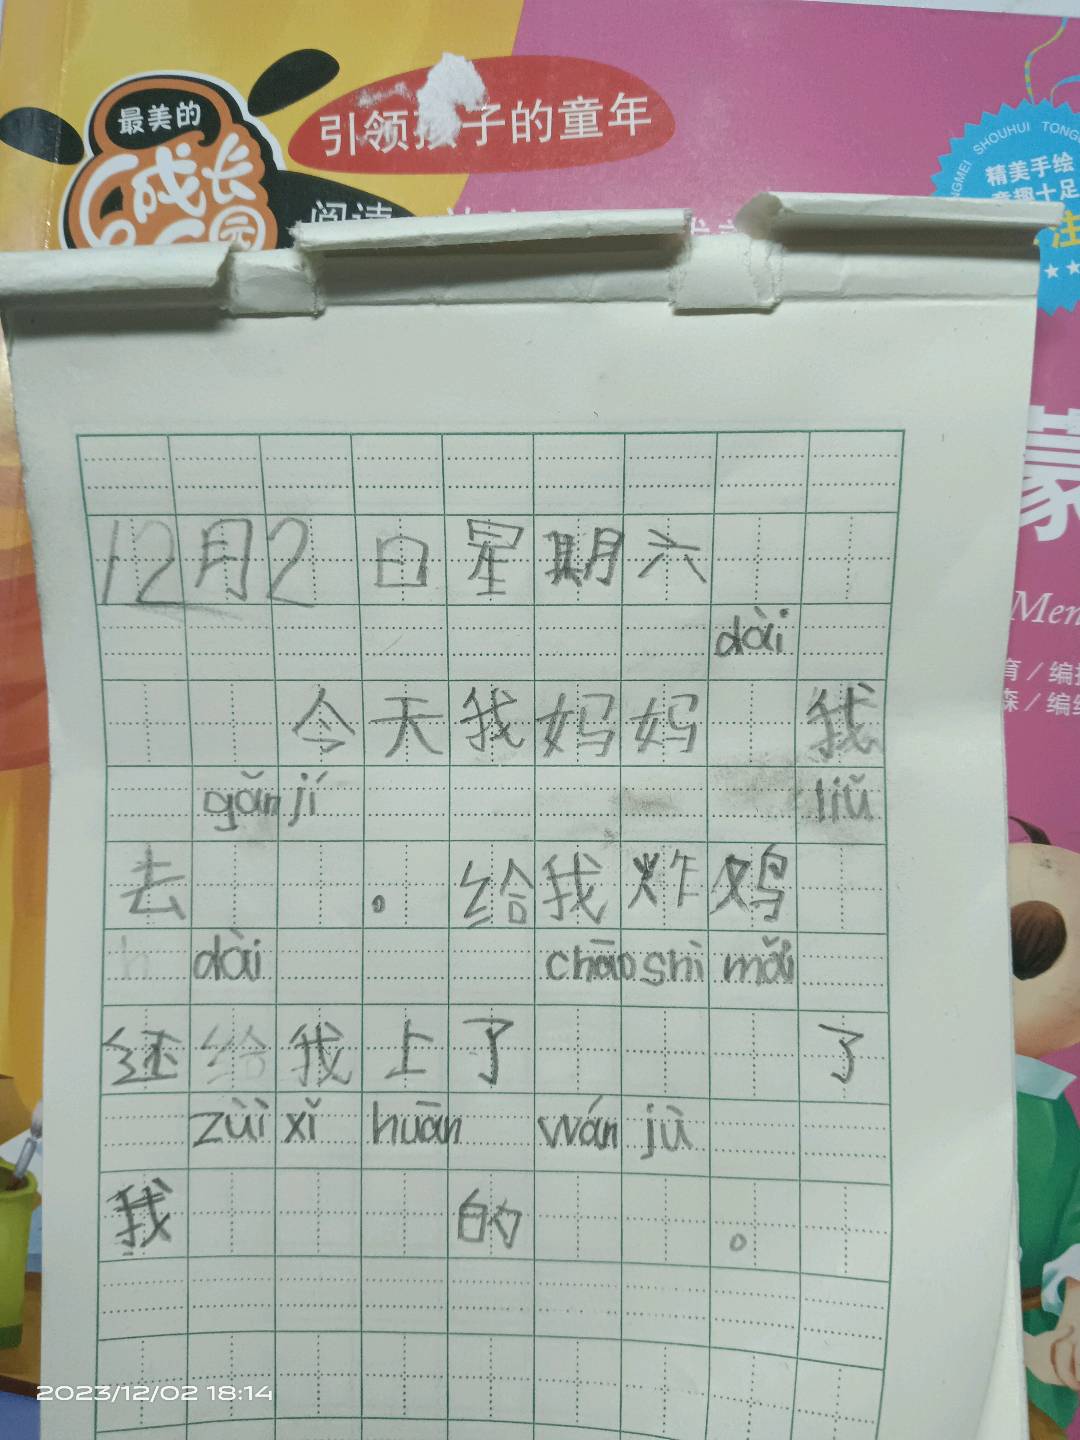 最美的
成长
园
引领孩子的童年
阅读
SHOUHUI TONG
精美手绘
童趣十足
注
蒙
Men
育/编
森/编
12月2日星期六
dài
今天我妈妈 我
gǎn jí liǔ
去 。给我炸鸡
dài chāo shì mǎi
还给我上了 了
zùì xǐ huān wán jù
我 的 。
2023/12/02 18:14